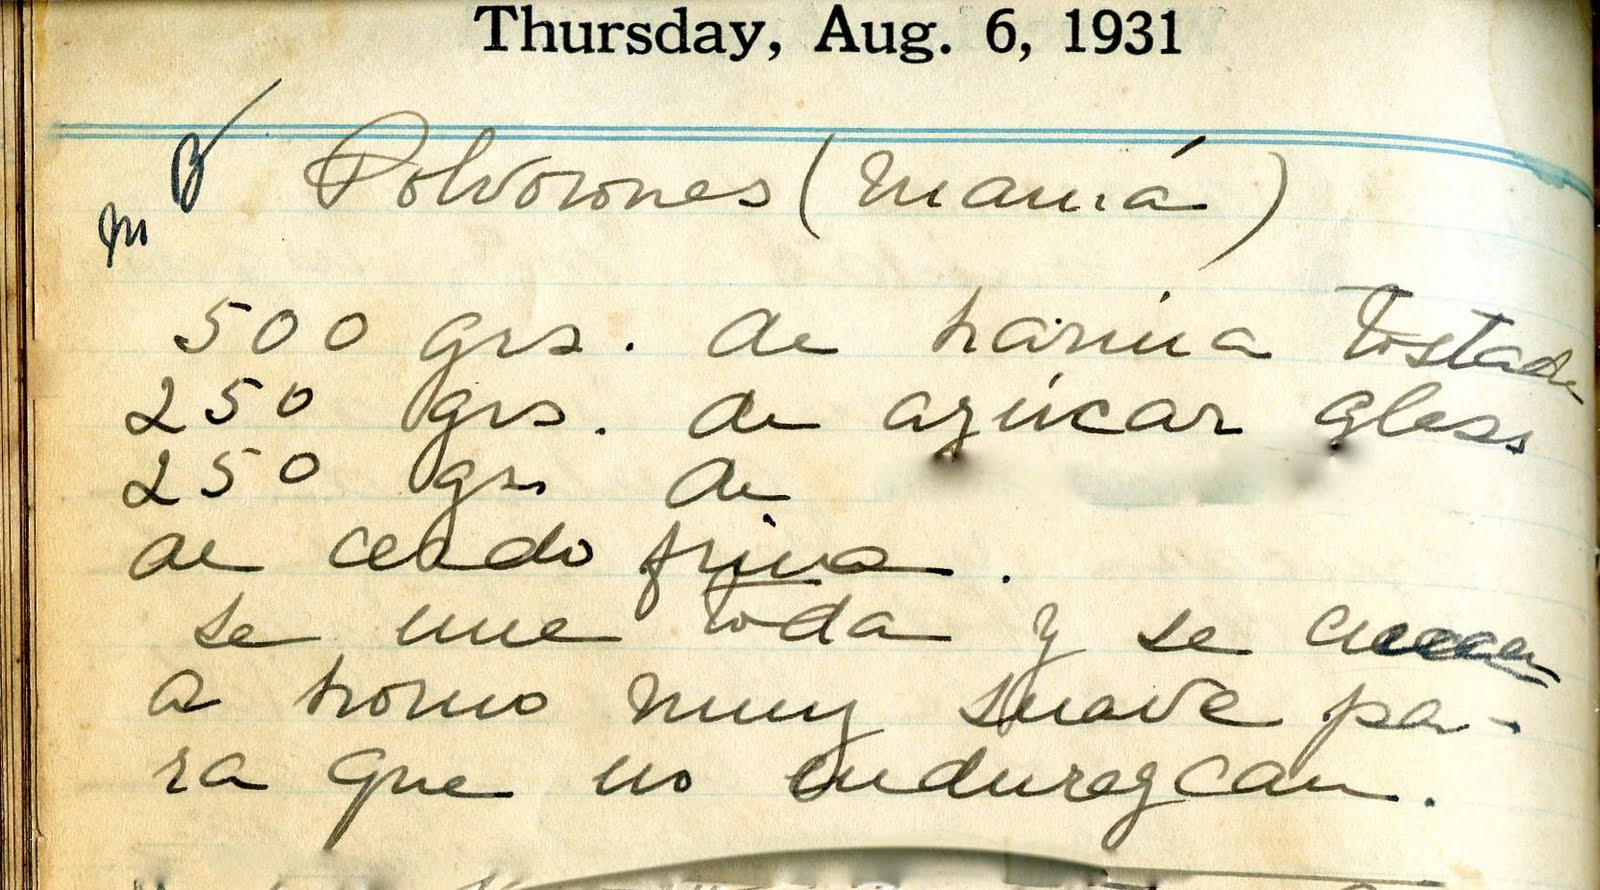 Thursday, Aug. 6, 1931
B
m
Polvorones (Mamá)
500 grs. de harina tostada
250 grs. de azúcar glass
250 grs de
de cerdo fina.
se une toda y se cuecen
a horno muy suave pa-
ra que no endurezcan.